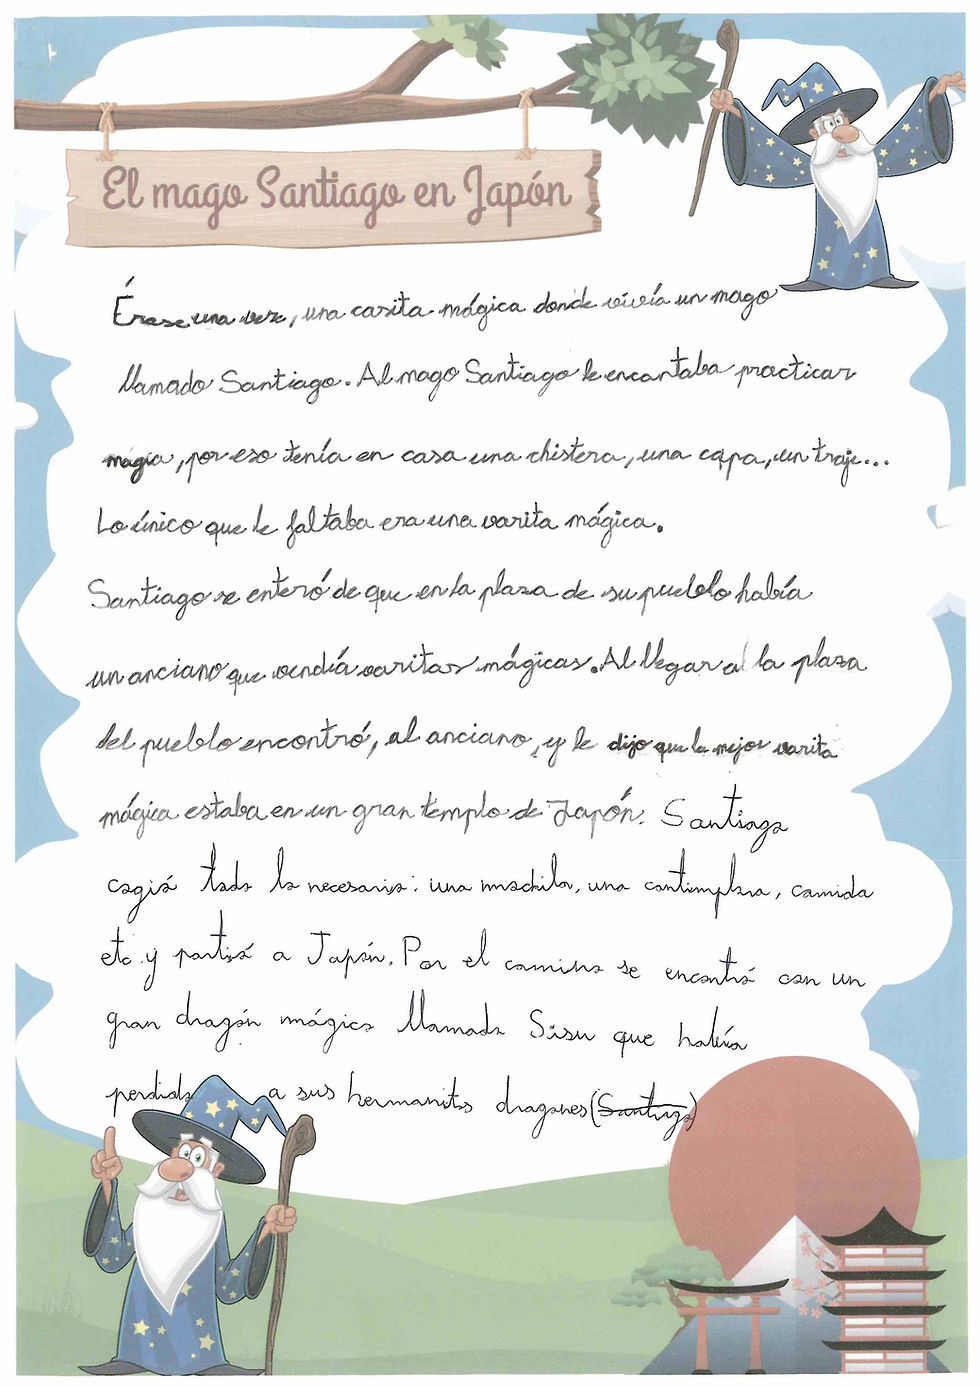 El mago Santiago en Japón
Érase una vez, una casita mágica donde vivía un mago
llamado Santiago. Al mago Santiago le encantaba practicar
magia, por eso tenía en casa una chistera, una capa, un traje...
Lo único que le faltaba era una varita mágica.
Santiago se enteró de que en la plaza de su pueblo había
un anciano que vendía varitas mágicas. Al llegar a la plaza
del pueblo encontró, al anciano, y le dijo que la mejor varita
mágica estaba en un gran templo de Japón. Santiago
cogió todo lo necesario: una mochila, una cantimplora, comida
etc. y partió a Japón. Por el camino se encontró con un
gran dragón mágico llamado Sisu que había
perdido a sus hermanitos dragones (Santiago)